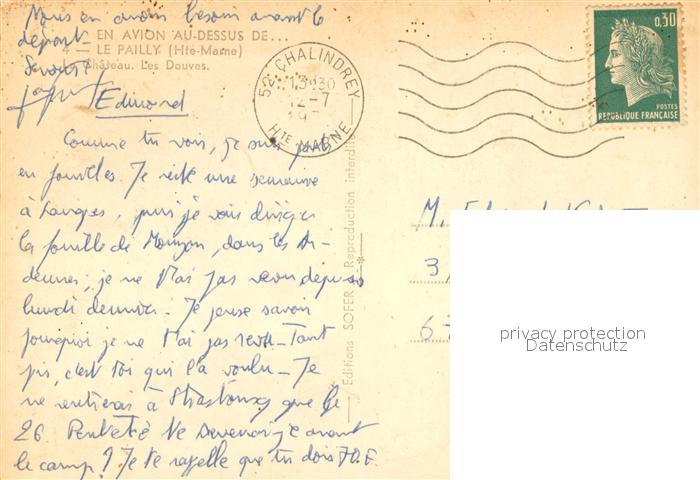 Nous en avons besoin avant le
départ.
EN AVION AU-DESSUS DE...
— LE PAILLY (Hte-Marne)
Château. Les Douves.
52 CHALINDREY
13h30
12-7
19
Hte MARNE
0,30
POSTES
REPUBLIQUE FRANÇAISE
Edmond
Comme tu vois, je suis parti
en fouilles. Je reste une semaine
à Langres, puis je vais diriger
la fouille de Mouzon, dans les Ar-
dennes, je ne t'ai pas revu depuis
lundi dernier. Je pense savoir
pourquoi je ne t'ai pas revu. Tant
pis, c'est toi qui l'a voulu. Je
ne rentrerai à Strasbourg que le
26. Peut-être te reverrai-je avant
le camp ? Je te rappelle que tu dois 70 F.
Editions SOFER — Reproduction interdite
M.
3
67
privacy protection
Datenschutz